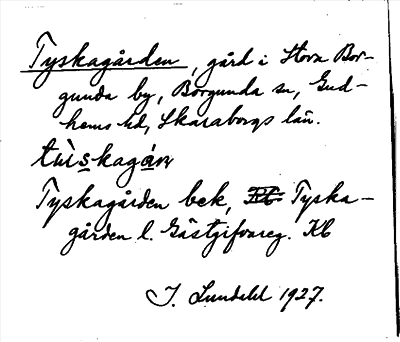 Tyskagården, gård i Stora Bor-
gunda by, Borgunda sn, Gud-
hems hd, Skaraborgs län.
tu̇̀skagȧ́ṇ
Tyskagården bek, Tyska-
gården l. Gästgifvareg. Kb
J. Lundahl 1927.